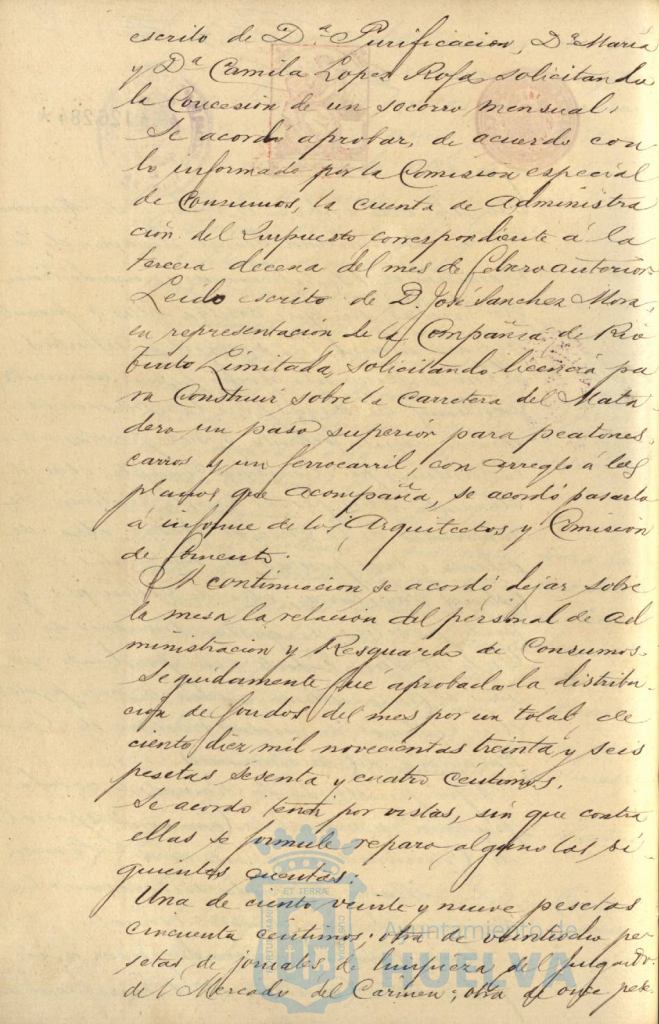 escrito de D.ª Purificacion, D.ª Maria
y Dª Camila Lopez Rofa solicitando
la Concesion de un socorro mensual.
Se acordó aprobar, de acuerdo con
lo informado por la Comision especial
de Consumos, la cuenta de Administra
ción del Impuesto correspondiente á la
tercera decena del mes de febrero anterior.
Leido escrito de D. José Sanchez Mora,
en representación de la Compañia de Rio
tinto Limitada, solicitando licencia pa
ra Construir sobre la carretera del Mata
dero un paso superior para peatones,
carros y un ferrocarril, con arreglo á los
planos que acompaña, se acordó pasarla
á informe de los Arquitectos y Comision
de fomento.
A continuacion se acordó dejar sobre
la mesa la relación del personal de ad
ministracion y Resguardo de Consumos.
Seguidamente fué aprobada la distribu
ción de fondos del mes por un total de
ciento diez mil novecientas treinta y seis
pesetas sesenta y cuatro céntimos.
Se acordo tener por vistas, sin que contra
ellas se formule reparo alguno las si
guientes cuentas:
Una de ciento veinte y nueve pesetas
cincuenta centimos; otra de veintiocho pe
setas de jornales de limpieza del
del Mercado del Carmen; otra de once pese
Ayuntamiento de
HUELVA